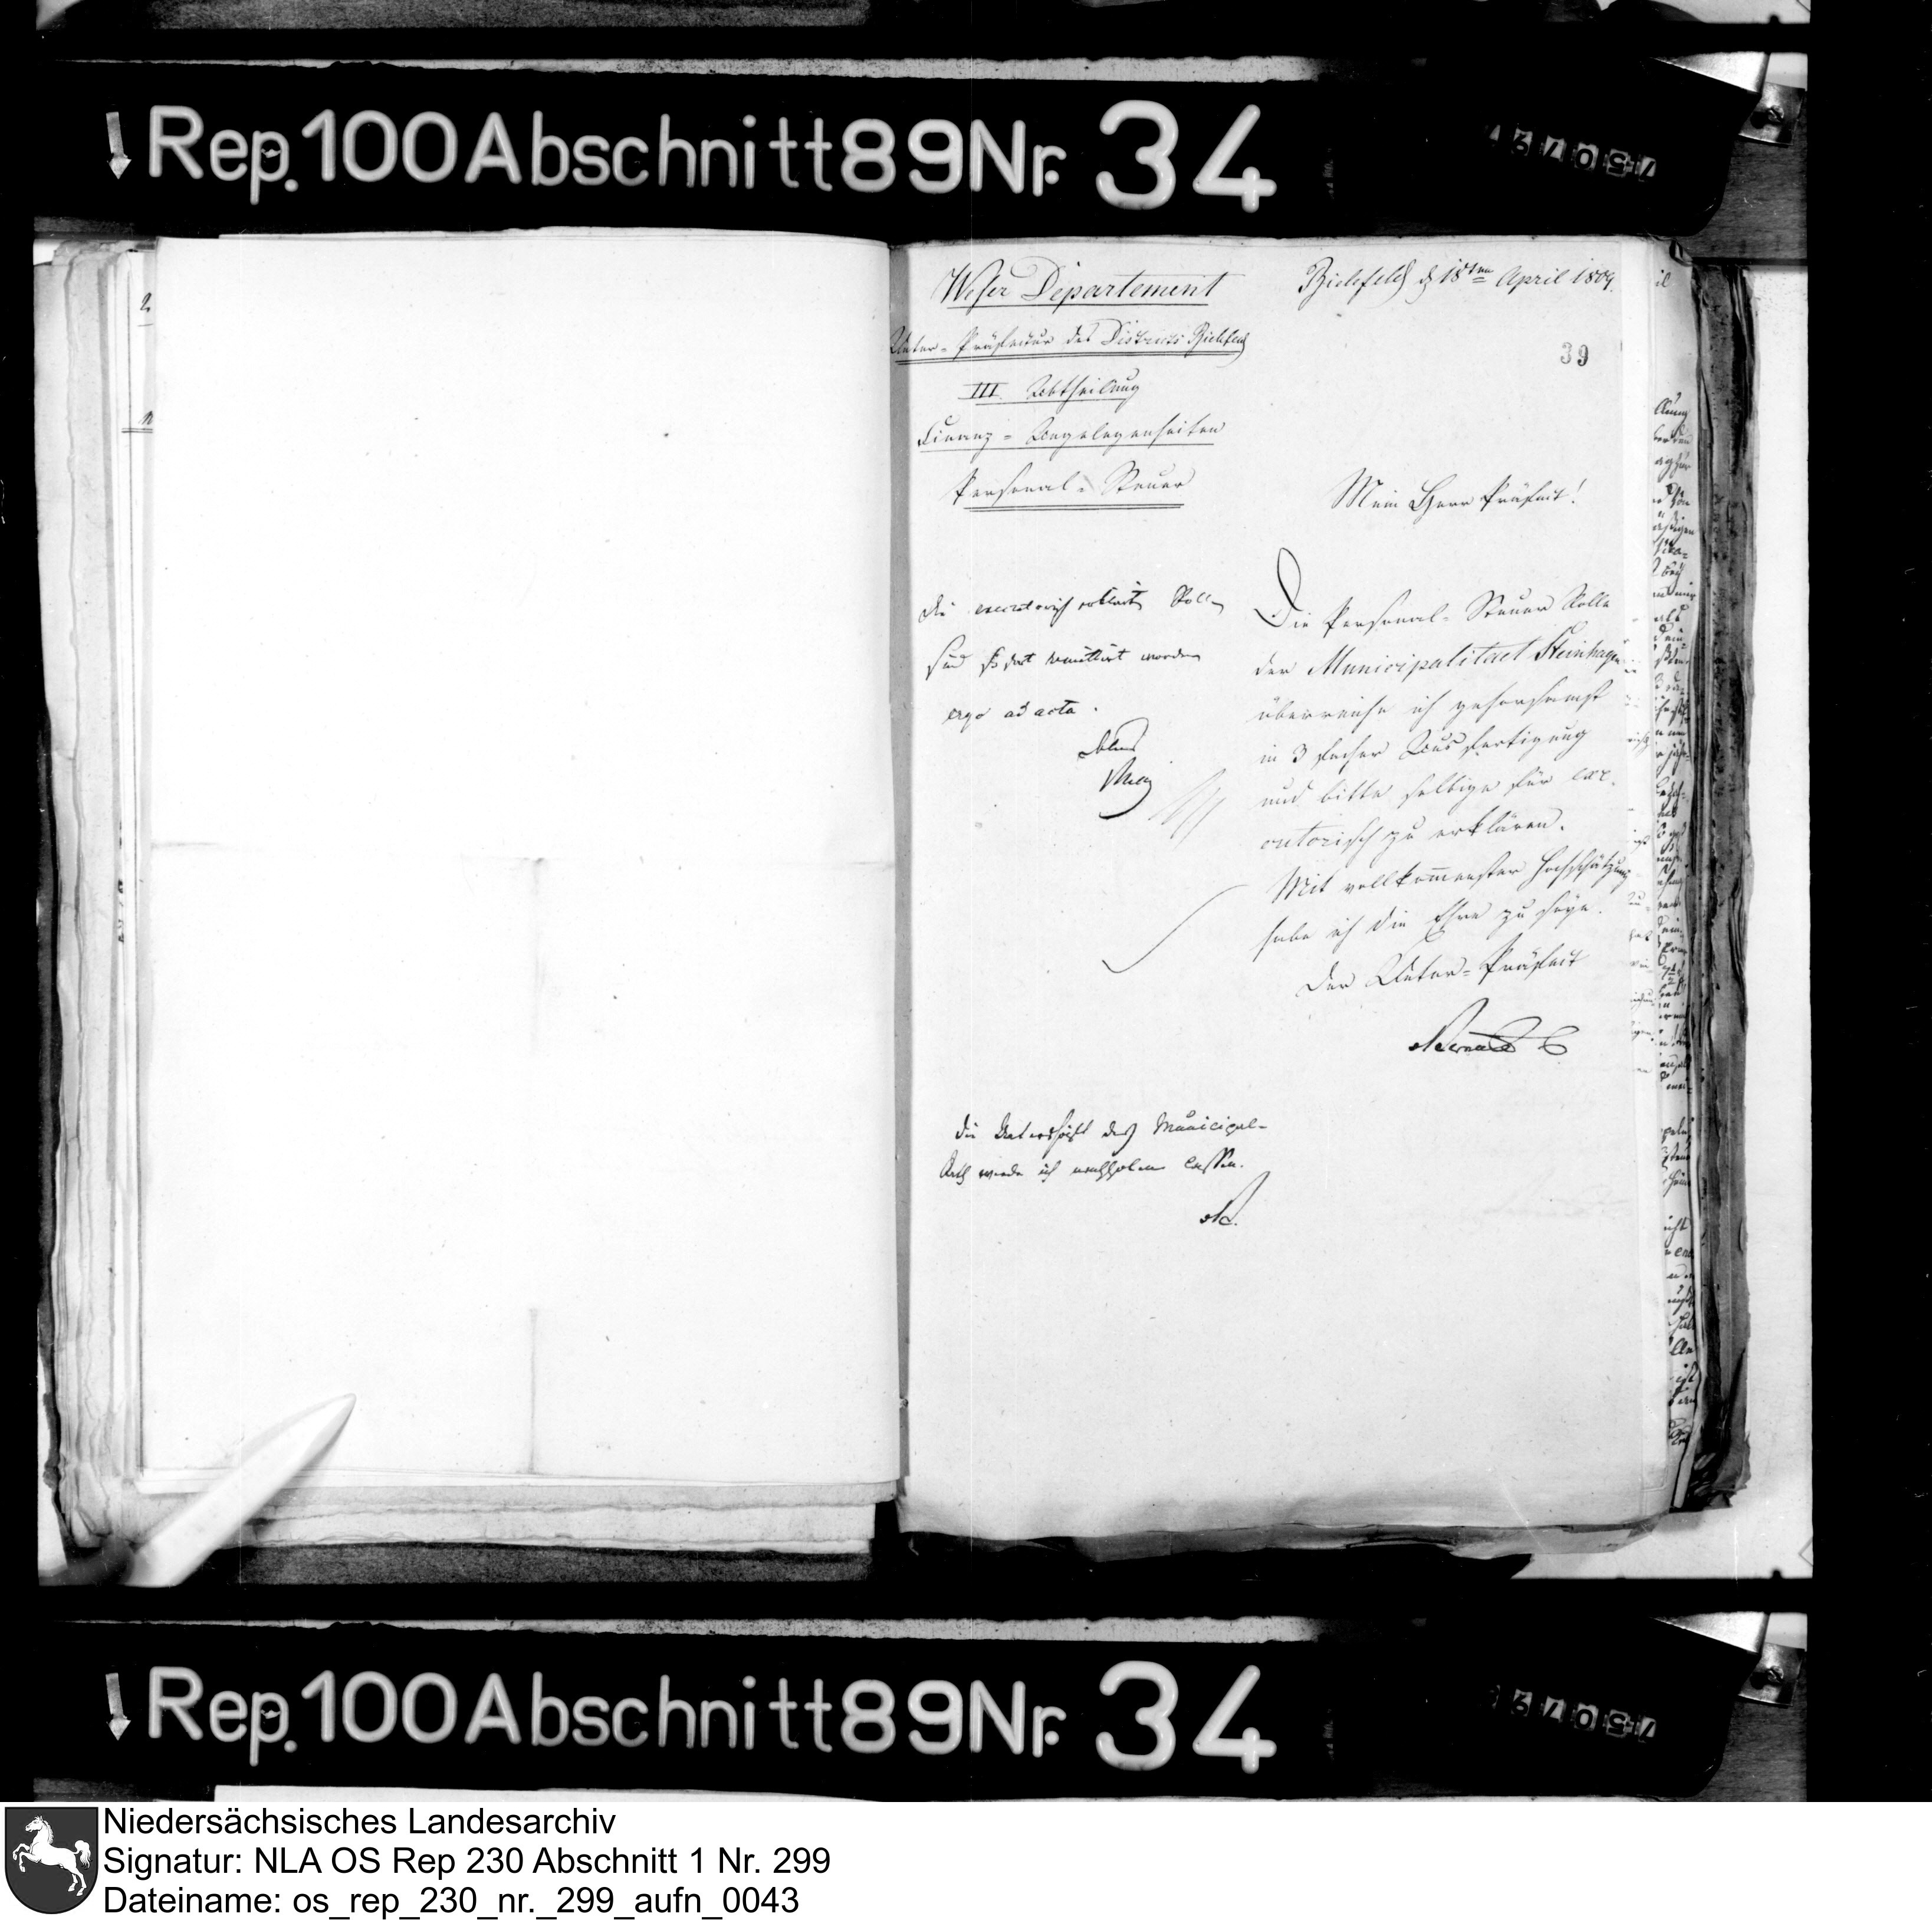 Rep. 100 Abschnitt 89 Nr. 34
Weser Departement
Bielefeld d 18ten April 1809.
39
Unter-Präfectur des Districts Bielefeld
III. Abtheilung
Finanz-Angelegenheiten
Personal-Steuer
Mein Herr Präfect!
Die Personal-Steuer Rolle
der Municipalitaet Steinhagen
überreiche ich gehorsamst
in 3 facher Ausfertigung
und bitte selbige für exe-
cutorisch zu erklären.
Mit vollkommenster Hochschätzung
habe ich die Ehre zu seyn.
Der Unter-Präfect
Die executorisch erklärte Rollen
sind remittirt worden
ergo ad acta.
Die Unterschrift des Municipal-
Rath werde ich nachholen lassen.
Rep. 100 Abschnitt 89 Nr. 34
Niedersächsisches Landesarchiv
Signatur: NLA OS Rep 230 Abschnitt 1 Nr. 299
Dateiname: os_rep_230_nr._299_aufn_0043